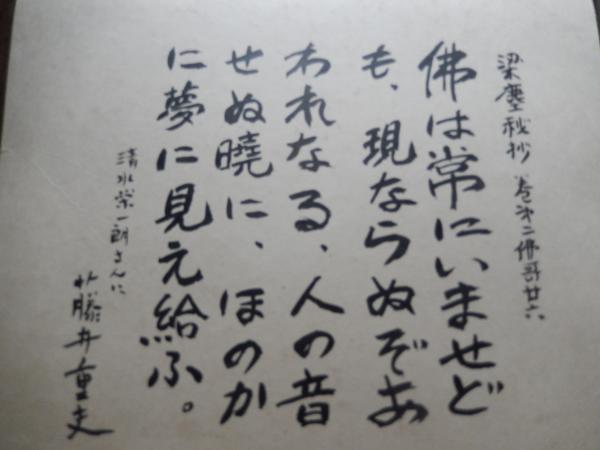 梁塵秘抄 巻第二佛哥廿六
佛は常にいませど
も、現ならぬぞあ
われなる、人の音
せぬ曉に、ほのか
に夢に見え給ふ。
清水栄一郎さんに
藤井重夫